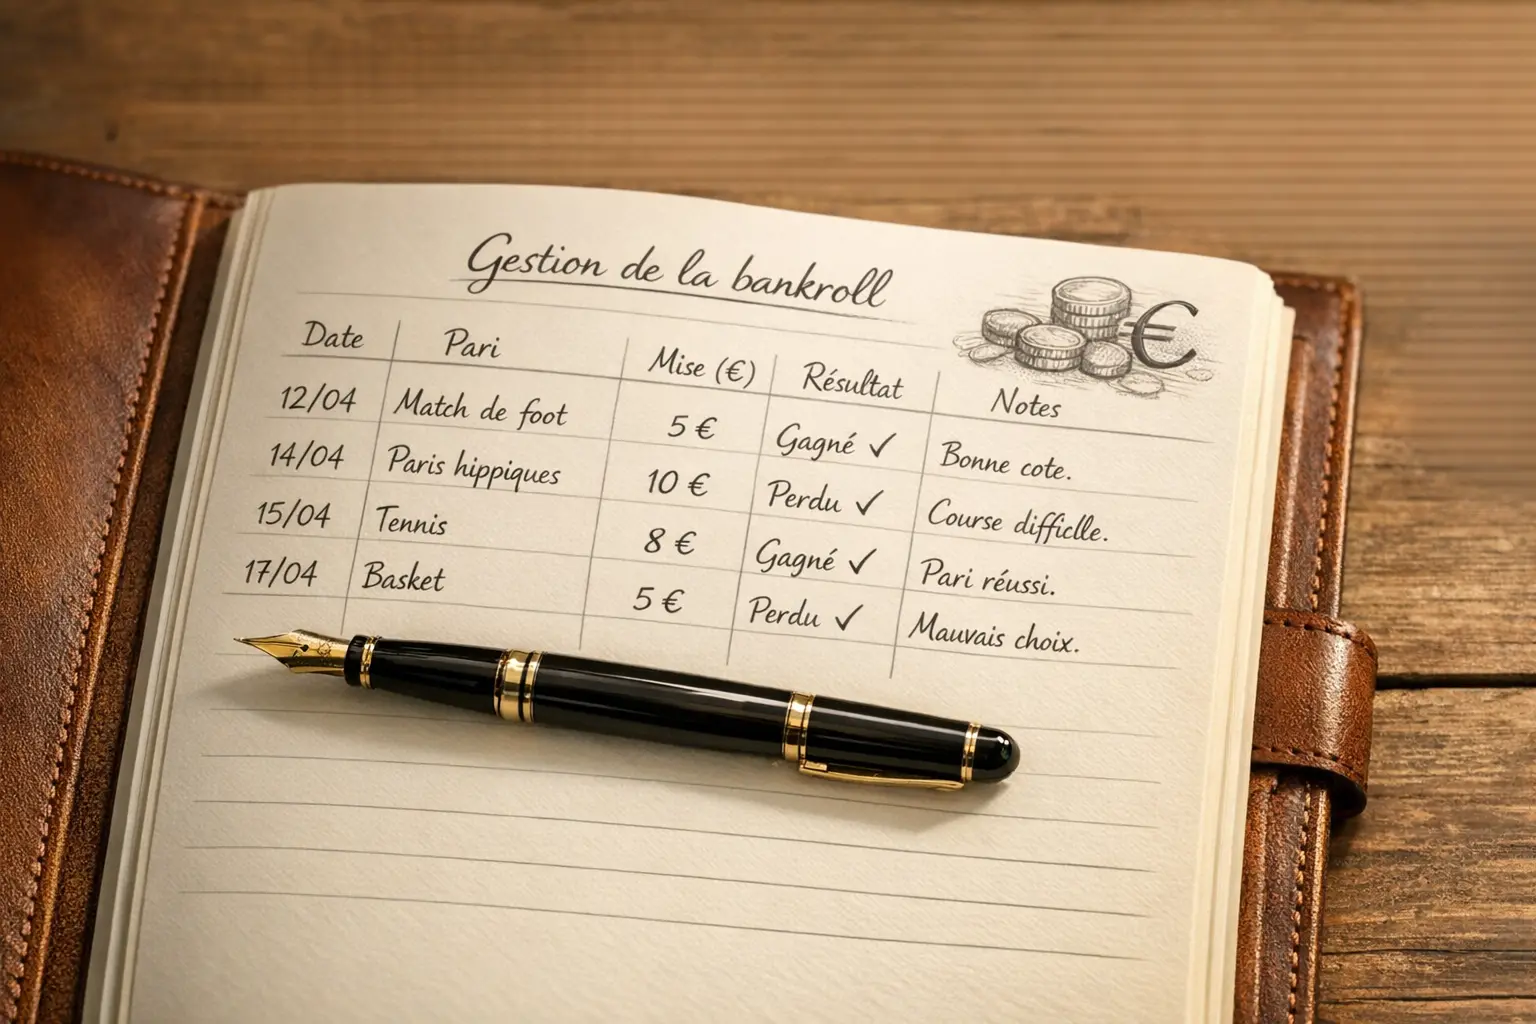 Gestion de la bankroll
€
Date Pari Mise (€) Résultat Notes
12/04 Match de foot 5 € Gagné ✓ Bonne cote.
14/04 Paris hippiques 10 € Perdu ✓ Course difficlle.
15/04 Tennis 8 € Gagné ✓ Pari réussi.
17/04 Basket 5 € Perdu ✓ Mauvais choix.